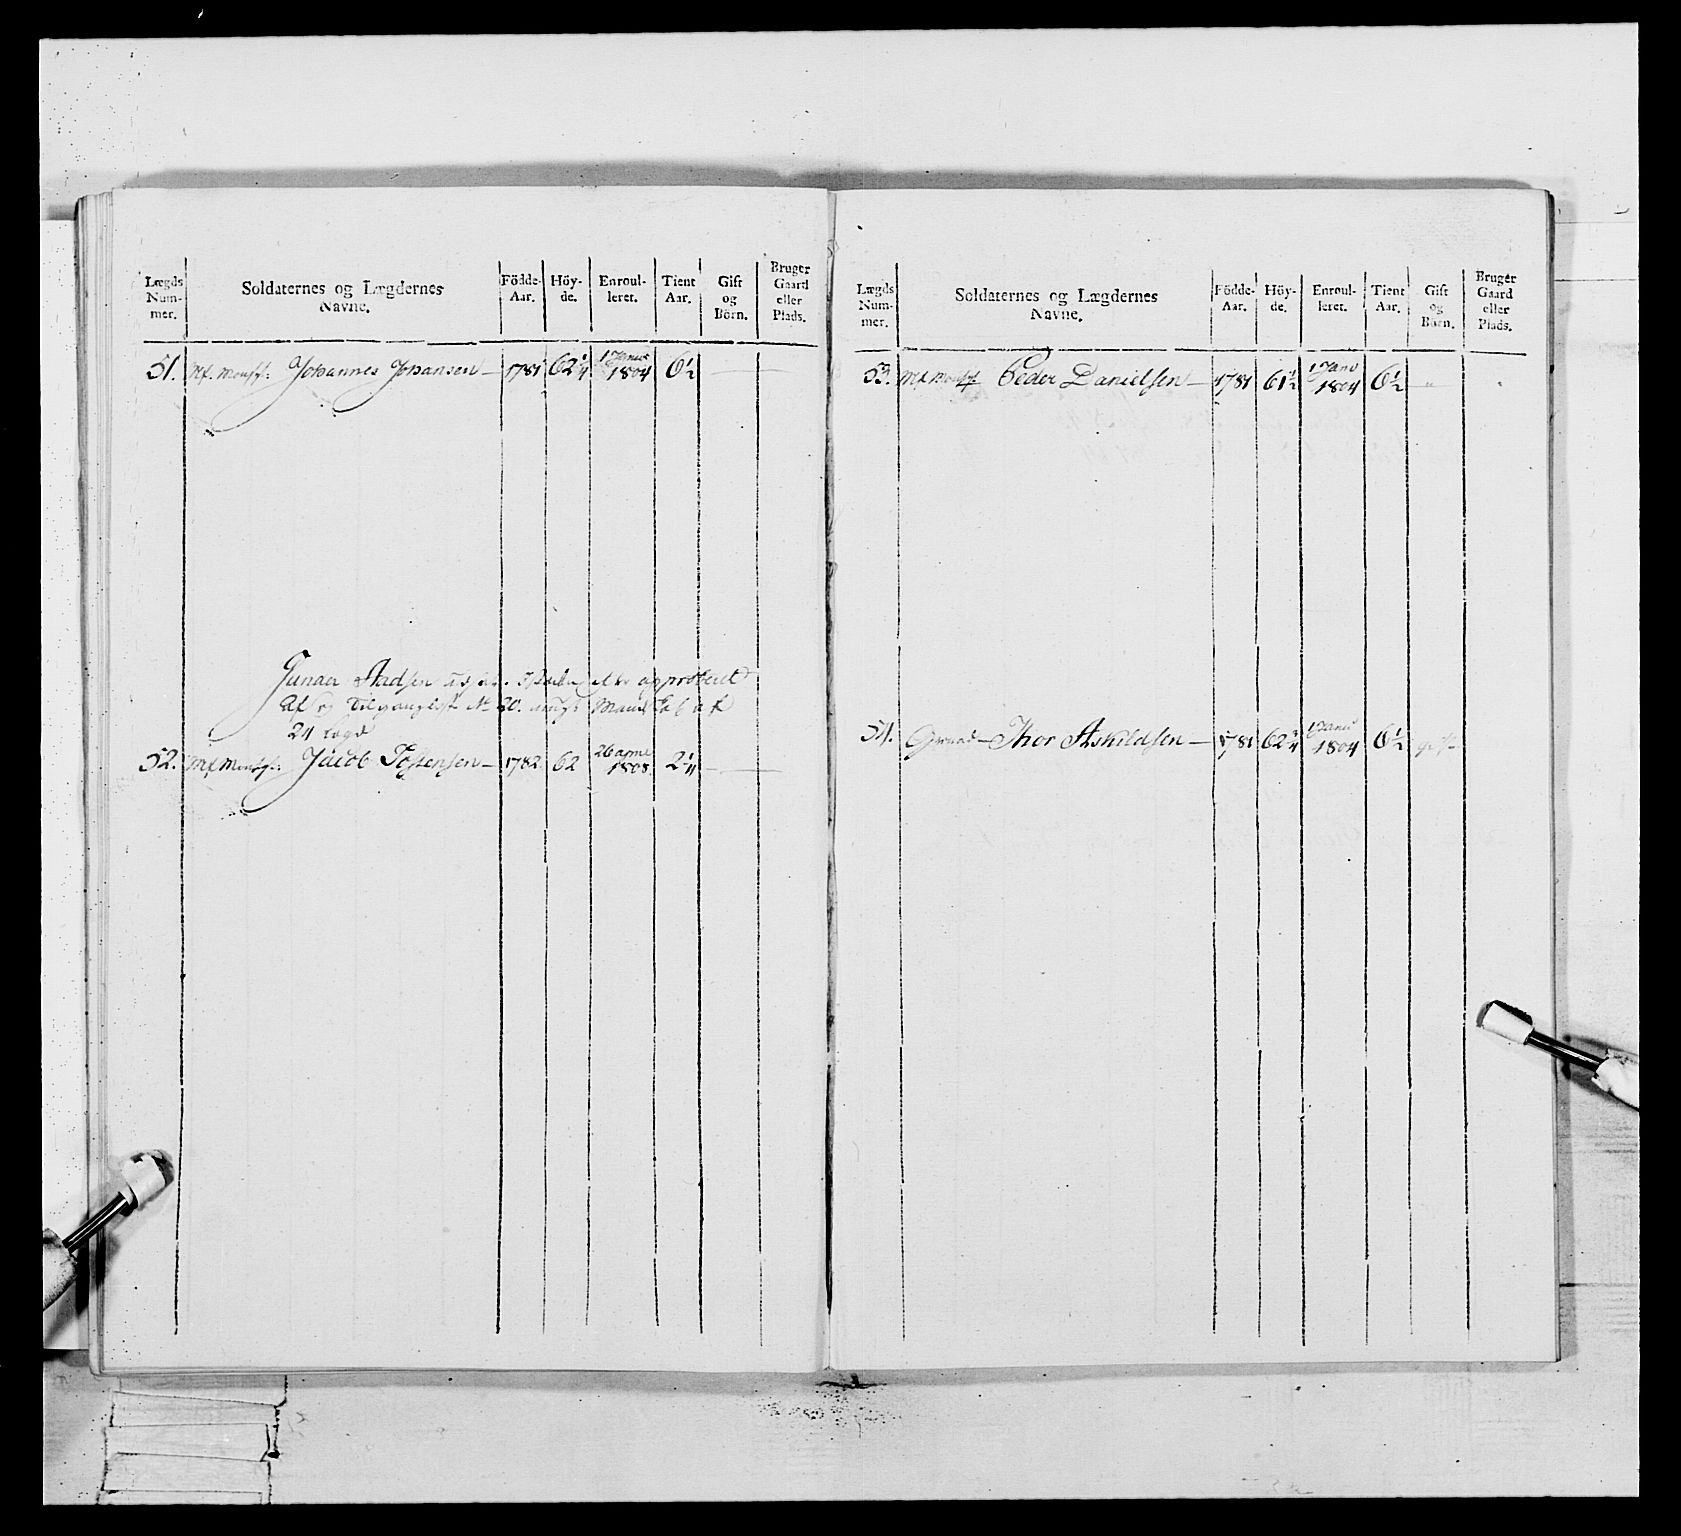 Lægds Num- mer.
Soldaternes og Lægdernes Navne.
Födde- Aar.
Höy- de.
Enroul- leret.
Tient Aar.
Gift og Börn.
Bruger Gaard eller Plads.
51. Johannes Johansen — 1781 62 1/4 1 Janur 1804 6 1/2 — —
Gunder Aadsen approberet
af Tilgangslist No 20.
24 Lægd
52. Jacob Tostensen — 1782 62 26 1808. 2 1/4 — —
Lægds Num- mer.
Soldaternes og Lægdernes Navne.
Födde- Aar.
Höy- de.
Enroul- leret.
Tient Aar.
Gift og Börn.
Bruger Gaard eller Plads.
53. Peder Danielsen — 1781 61 1/2 1 Janu 1804 6 1/2 " "
54. Thor Askildsen — 1781 62 3/4 1 Janu 1804 6 1/2 gift